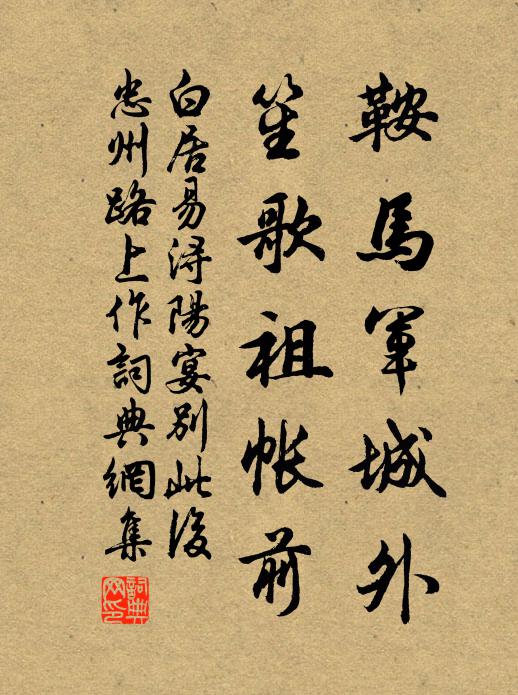 鞍馬軍城外
笙歌祖帳前
白居易潯陽宴別此後
忠州路上作詞典網集
詞典网印